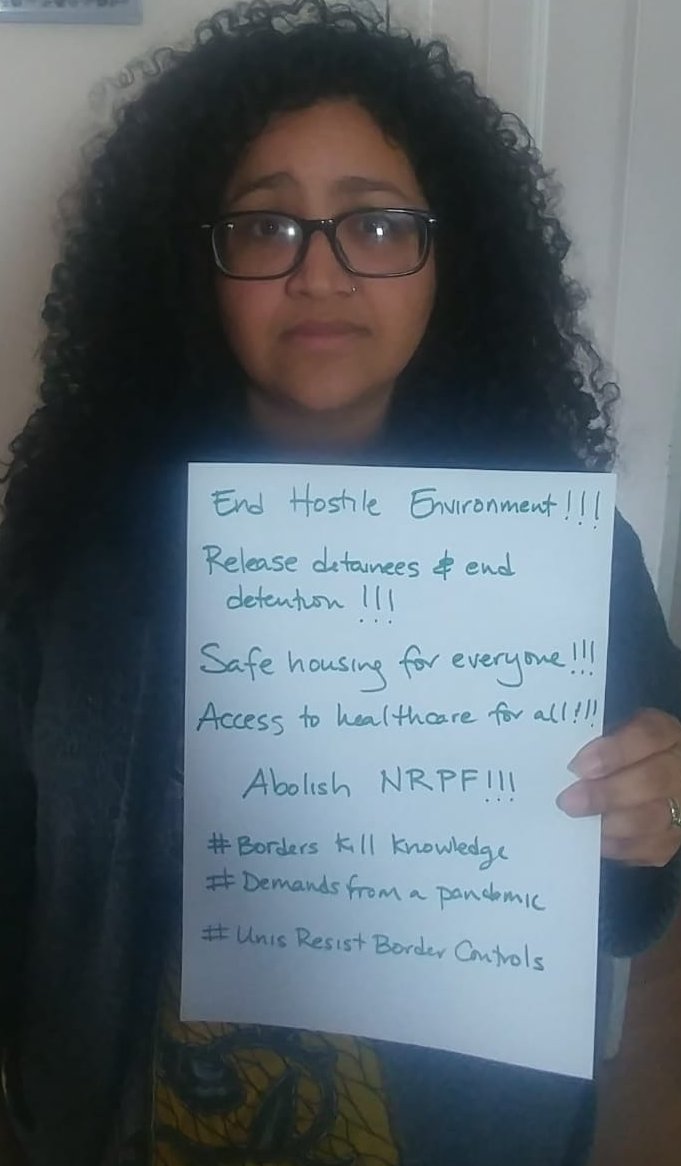 End Hostile Environment!!!
Release detainees & end
detention !!!
Safe housing for everyone!!!
Access to healthcare for all!!!
Abolish NRPF!!!
# Borders Kill Knowledge
# Demands from a pandemic
# Unis Resist Border Controls